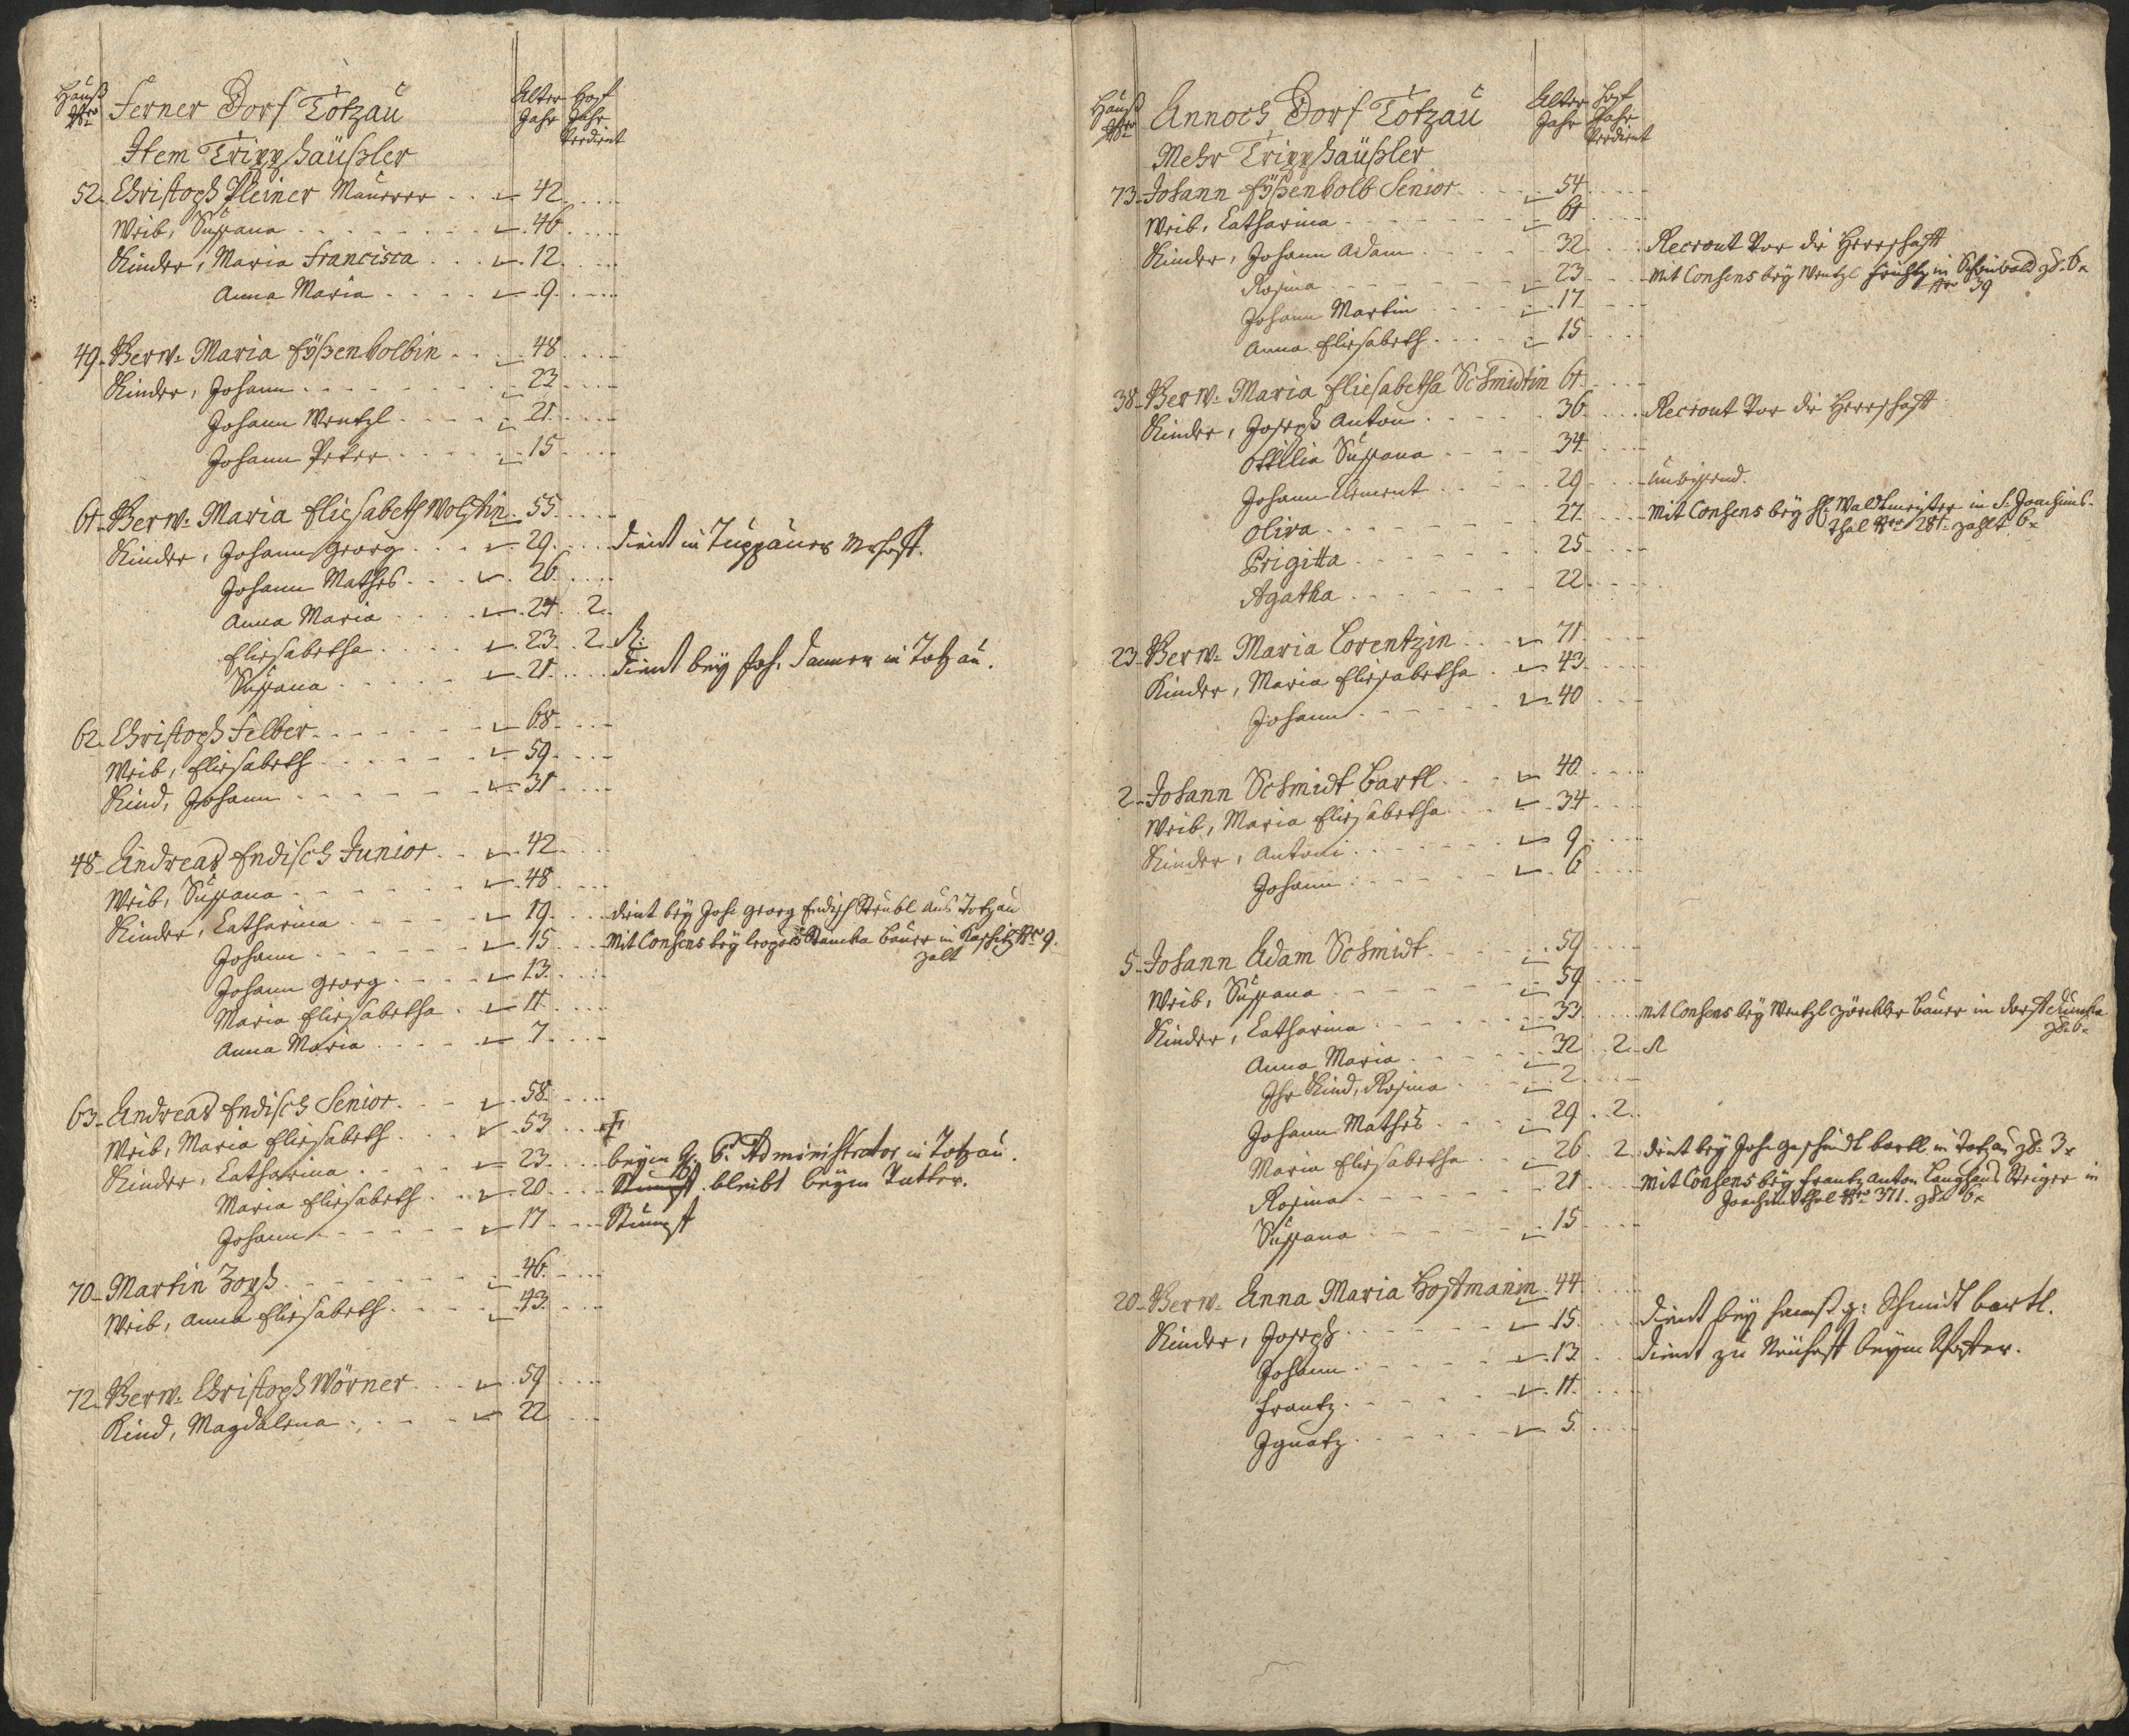 Hauß Nro
Ferner Dorf Totzau
Alter Jahr
Hof Jahr Verdient
Item Tripphäußler
52. Christoph Pleiner Maurer 42
Weib, Susanna 46
Kinder, Maria Francisca 12
Anna Maria 9
49. Verw. Maria Eÿßenkolbin 48
Kinder, Johann 23
Johann Wentzl 21
Johann Peter 15
61. Verw. Maria Eliesabeth 55
Kinder, Johann Georg 29 dient in
Johann Mathes 26
Anna Maria 24 2
Eliesabetha 23 2
Susanna 21 dient beÿ Joh. in Totzau.
62. Christoph Felber 68
Weib, Eliesabeth 59
Kind, Johann 31
48. Andreas Endisch Junior 42
Weib, Susanna 48
Kinder, Catharina 19 dient beÿ Joh. Georg Endisch aus Totzau
Johann 15 Mit Consens beÿ Bauer in Nro 9.
zalt
Johann Georg 13
Maria Eliesabetha 11
Anna Maria 7
63. Andreas Endisch Senior 58
Weib, Maria Eliesabeth 53
Kinder, Catharina 23 beÿm H. P. Administrator in Totzau.
Maria Eliesabeth 20 bleibt beÿm Vatter.
Johann 17
70. Martin 46
Weib, Anna Eliesabeth 43
72. Verw. Christoph Wörner 59
Kind, Magdalena 22
Hauß Nro
Annoch Dorf Totzau
Alter Jahr
Hof Jahr Verdient
Mehr Tripphäußler
73. Johann Eÿßenkolb Senior 54
Weib, Catharina 61
Kinder, Johann Adam 32 Recrout vor die Herrschafft
Rosina 23 Mit Consens beÿ Wentzl in
Nro 39
Johann Martin 17
Anna Eliesabeth 15
38. Verw. Maria Eliesabetha Schmidtin 61
Kinder, Joseph Anton 36 Recrout vor die Herrschafft
Ottilia Susanna 34
Johann Clement 29
Oliva 27 Mit Consens beÿ H. Waldtmeister in S. Joachims-
thal Nro 281. zahlt 6x
Brigitta 25
Agatha 22
23. Verw. Maria Lorentzin 71
Kinder, Maria Eliesabetha 43
Johann 40
2. Johann Schmidt Bartl 40
Weib, Maria Eliesabetha 34
Kinder, Antoni 9
Johann 6
5. Johann Adam Schmidt 59
Weib, Susanna 59
Kinder, Catharina 33 Mit Consens beÿ Wentzl Bauer in
Anna Maria 32 2
Ihr Kind, Rosina 2
Johann Mathes 29 2
Maria Eliesabetha 26 2 dient beÿ Joh. bartl in Totzau 3x
Rosina 21 Mit Consens beÿ Frantz Anton Langhans Steiger in
Joachimsthal Nro 371. 6x
Susanna 15
20. Verw. Anna Maria Hoffmanin 44
Kinder, Joseph 15 dient beÿ Schmidt bartl.
Johann 13 dient zu beÿm
Frantz 11
Ignatz 5